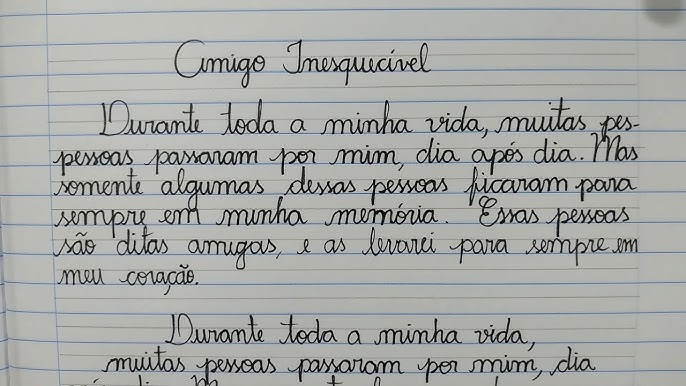 Amigo Inesquecível
Durante toda a minha vida, muitas pes-
pessoas passaram por mim, dia após dia. Mas
somente algumas dessas pessoas ficaram para
sempre em minha memória. Essas pessoas
são ditas amigas, e as levarei para sempre em
meu coração.
Durante toda a minha vida,
muitas pessoas passaram por mim, dia